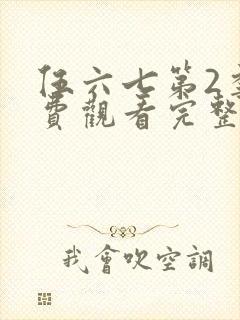 伍六七第2季
費觀看完整
我會吹空調